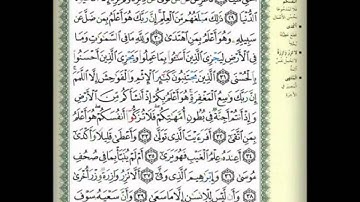 ٱلدُّنْيَا ٢٩ ذَٰلِكَ مَبْلَغُهُم مِّنَ ٱلْعِلْمِ إِنَّ رَبَّكَ هُوَ أَعْلَمُ بِمَن ضَلَّ عَن
سَبِيلِهِۦ وَهُوَ أَعْلَمُ بِمَنِ ٱهْتَدَىٰ ٣٠ وَلِلَّهِ مَا فِي ٱلسَّمَٰوَٰتِ وَمَا فِي
ٱلْأَرْضِ لِيَجْزِيَ ٱلَّذِينَ أَسَٰٓـُٔوا۟ بِمَا عَمِلُوا۟ وَيَجْزِيَ ٱلَّذِينَ أَحْسَنُوا۟
بِٱلْحُسْنَى ٣١ ٱلَّذِينَ يَجْتَنِبُونَ كَبَٰٓئِرَ ٱلْإِثْمِ وَٱلْفَوَٰحِشَ إِلَّا ٱللَّمَمَ
إِنَّ رَبَّكَ وَٰسِعُ ٱلْمَغْفِرَةِ هُوَ أَعْلَمُ بِكُمْ إِذْ أَنشَأَكُم مِّنَ ٱلْأَرْضِ
وَإِذْ أَنتُمْ أَجِنَّةٌ فِي بُطُونِ أُمَّهَٰتِكُمْ فَلَا تُزَكُّوٓا۟ أَنفُسَكُمْ هُوَ أَعْلَمُ
بِمَنِ ٱتَّقَىٰٓ ٣٢ أَفَرَءَيْتَ ٱلَّذِي تَوَلَّىٰ ٣٣ وَأَعْطَىٰ قَلِيلًا وَأَكْدَىٰٓ
٣٤ أَعِندَهُۥ عِلْمُ ٱلْغَيْبِ فَهُوَ يَرَىٰٓ ٣٥ أَمْ لَمْ يُنَبَّأْ بِمَا فِي صُحُفِ
مُوسَىٰ ٣٦ وَإِبْرَٰهِيمَ ٱلَّذِي وَفَّىٰٓ ٣٧ أَلَّا تَزِرُ وَازِرَةٌ وِزْرَ أُخْرَىٰ
٣٨ وَأَن لَّيْسَ لِلْإِنسَٰنِ إِلَّا مَا سَعَىٰ ٣٩ وَأَنَّ سَعْيَهُۥ سَوْفَ